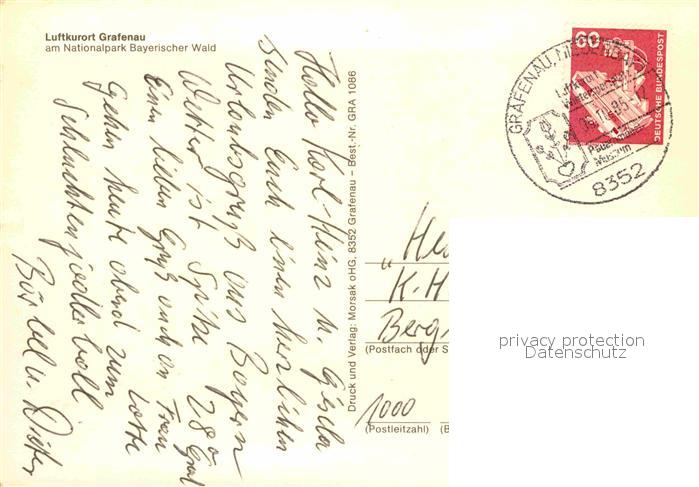 Luftkurort Grafenau
am Nationalpark Bayerischer Wald
Hallo Karl-Heinz u. Gisela
Senden Euch einen herzlichen
Urlaubsgruß aus Bayern
Wetter ist Spitze 28° Grad
Einen lieben Gruß auch an Frau Lotte
Gehen heute abend zum
Schluchtenjodlerball
Bärbel u. Dieter
Druck und Verlag: Morsak oHG, 8352 Grafenau – Best.-Nr. GRA 1086
60
DEUTSCHE BUNDESPOST
GRAFENAU,
Museum
8352
K.H
Berg
(Postfach oder S
1000
(Postleitzahl) (B
privacy protection
Datenschutz